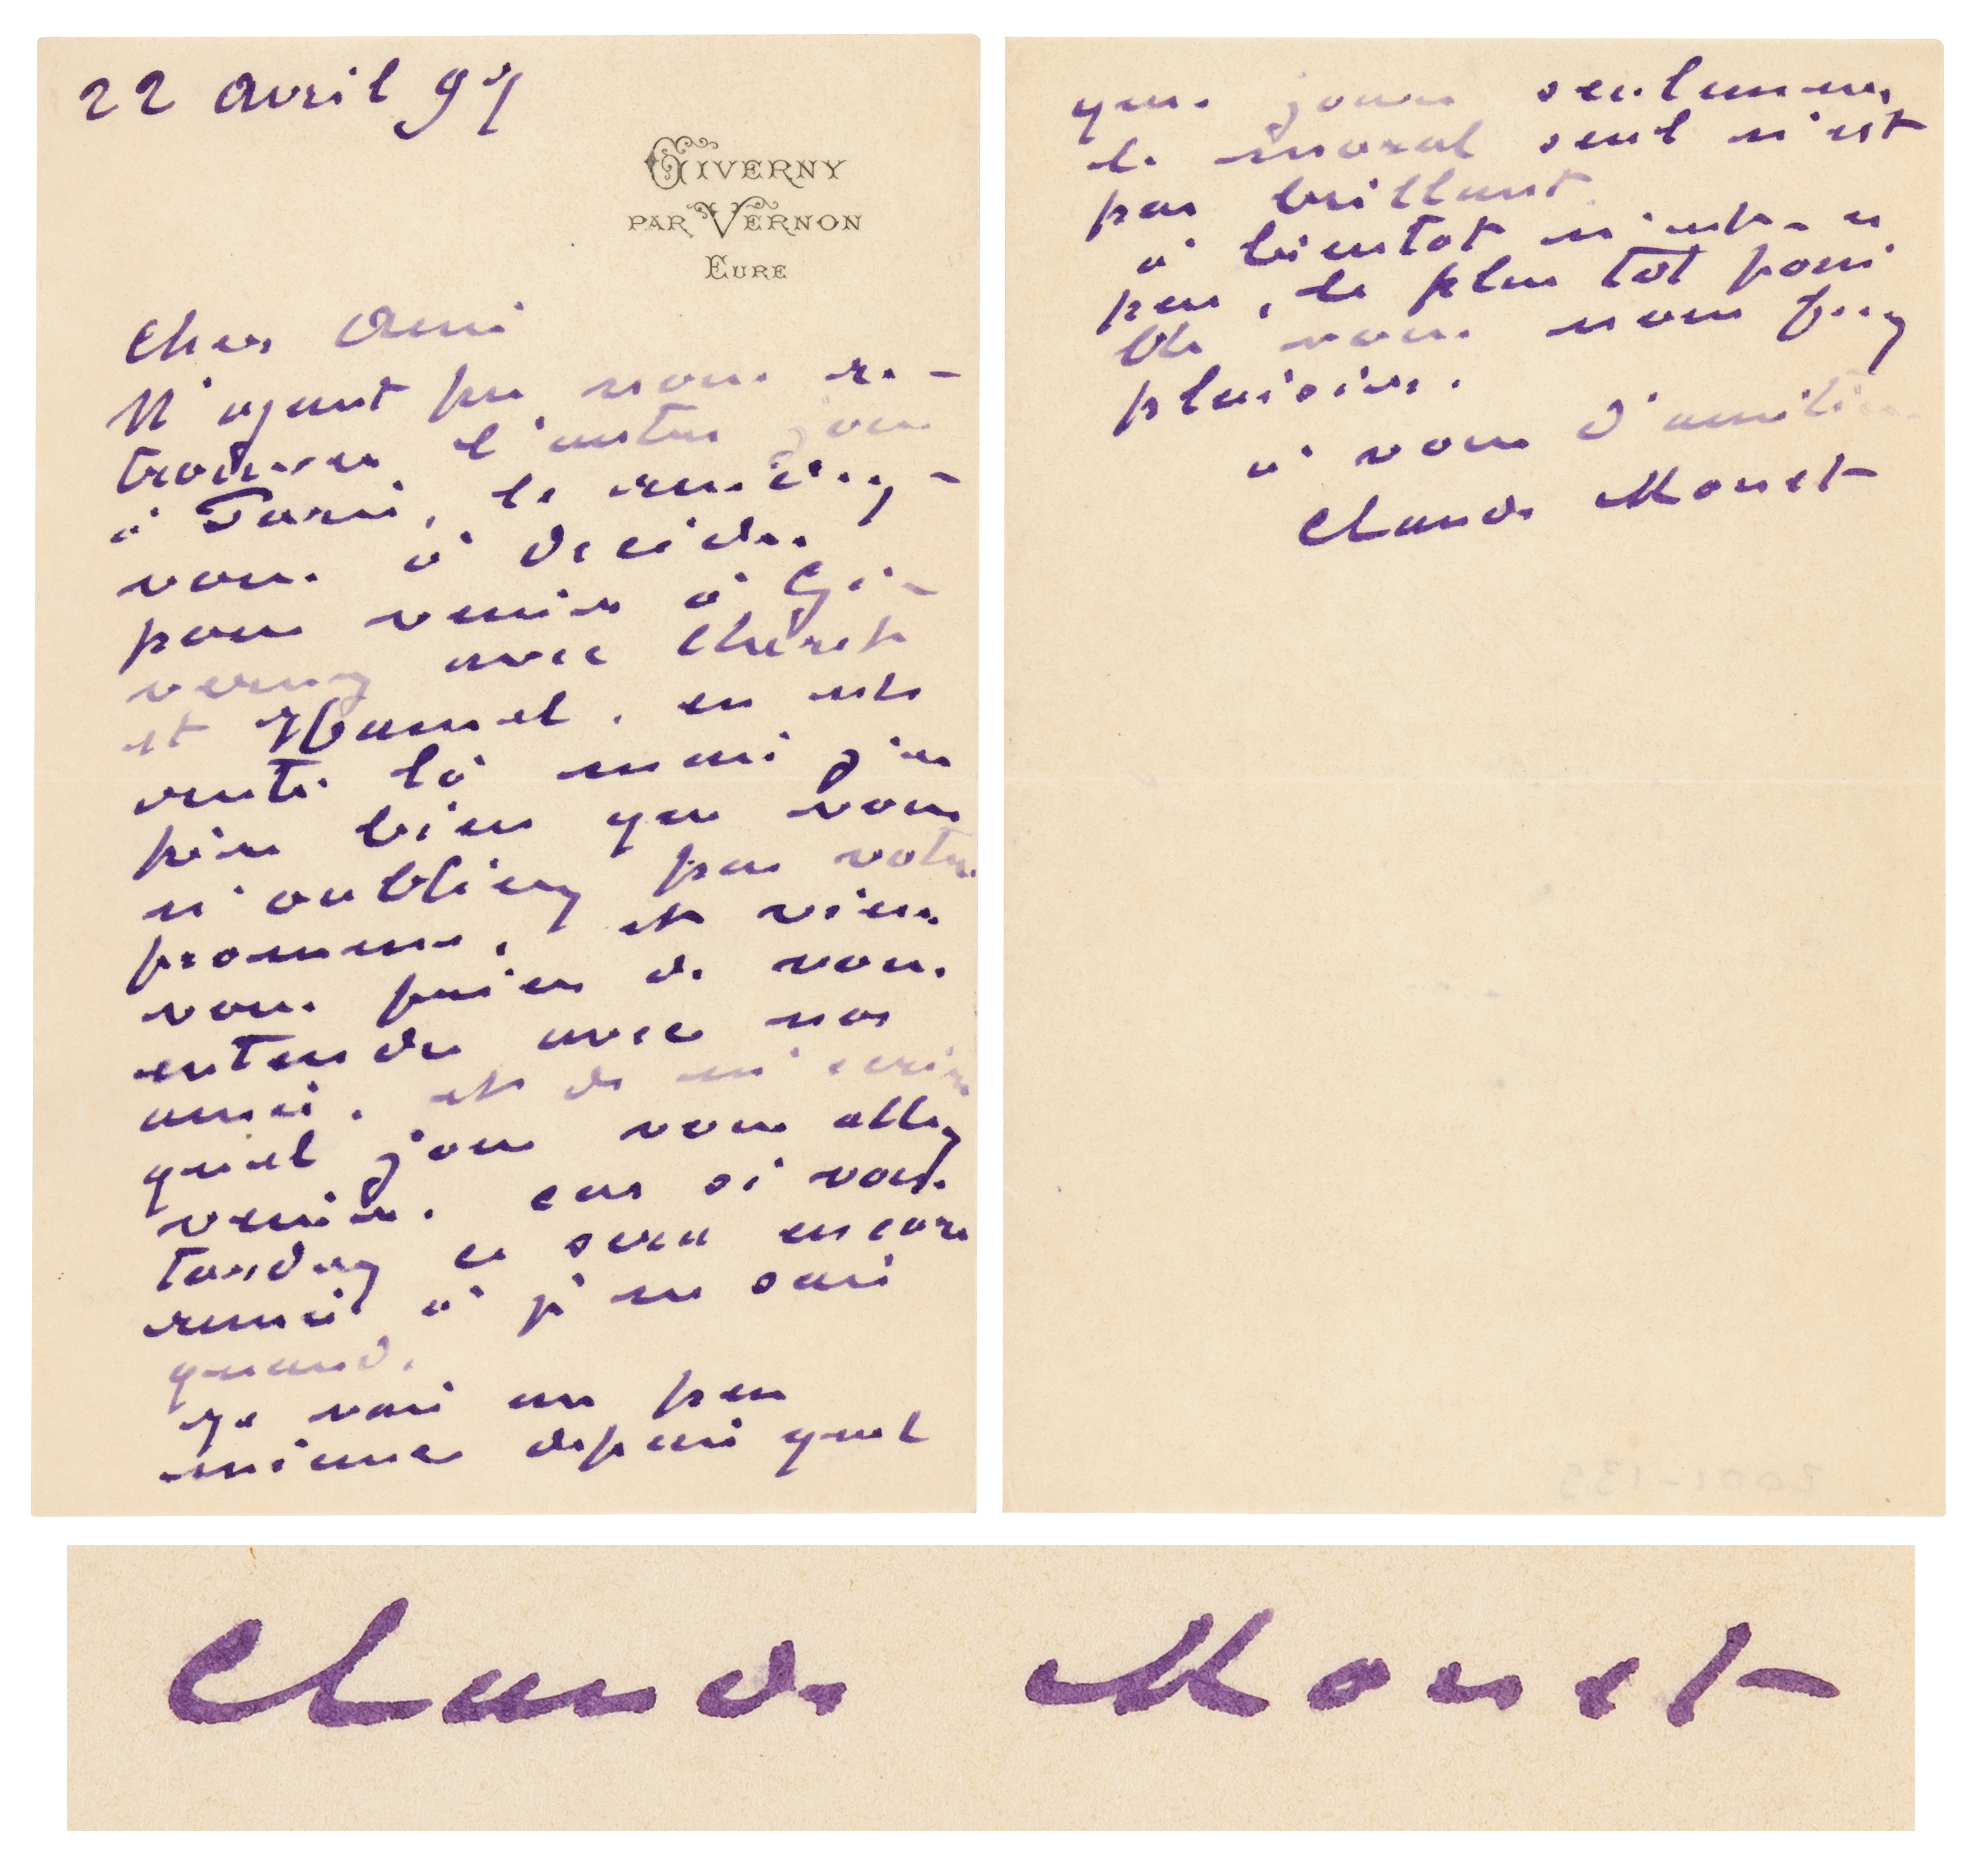 22 avril 97
GIVERNY
PAR VERNON
EURE
Cher Ami
N'ayant pu vous re-
trouver l'autre jour
à Paris, le rendez-
vous à décider
pour venir à Gi-
verny avec Chéret
et Hamel, en est
resté là mais j'es
père bien que vous
n'oubliez pas votre
promesse, et viens
vous prier de vous
entendre avec nos
amis, et de m'écrire
quel jour vous allez
venir, car si vous
tardez ce sera encore
remis à je ne sais
quand.
Je vais un peu
mieux depuis quel
ques jours seulement
le moral seul n'est
pas brillant.
à bientôt n'est-ce
pas, le plus tôt possi
ble vous nous ferez
plaisir.
à vous d'amitié
Claude Monet
Claude Monet